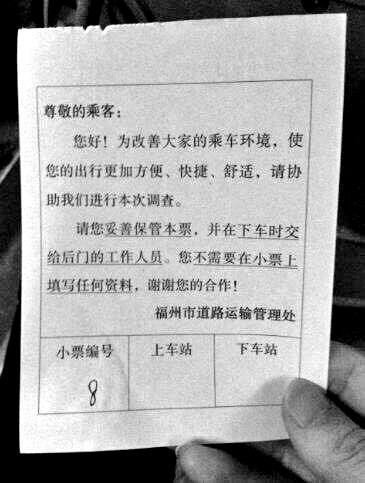 尊敬的乘客：
您好！为改善大家的乘车环境，使
您的出行更加方便、快捷、舒适，请协
助我们进行本次调查。
请您妥善保管本票，并在下车时交
给后门的工作人员。您不需要在小票上
填写任何资料，谢谢您的合作！
福州市道路运输管理处
小票编号 上车站 下车站
8